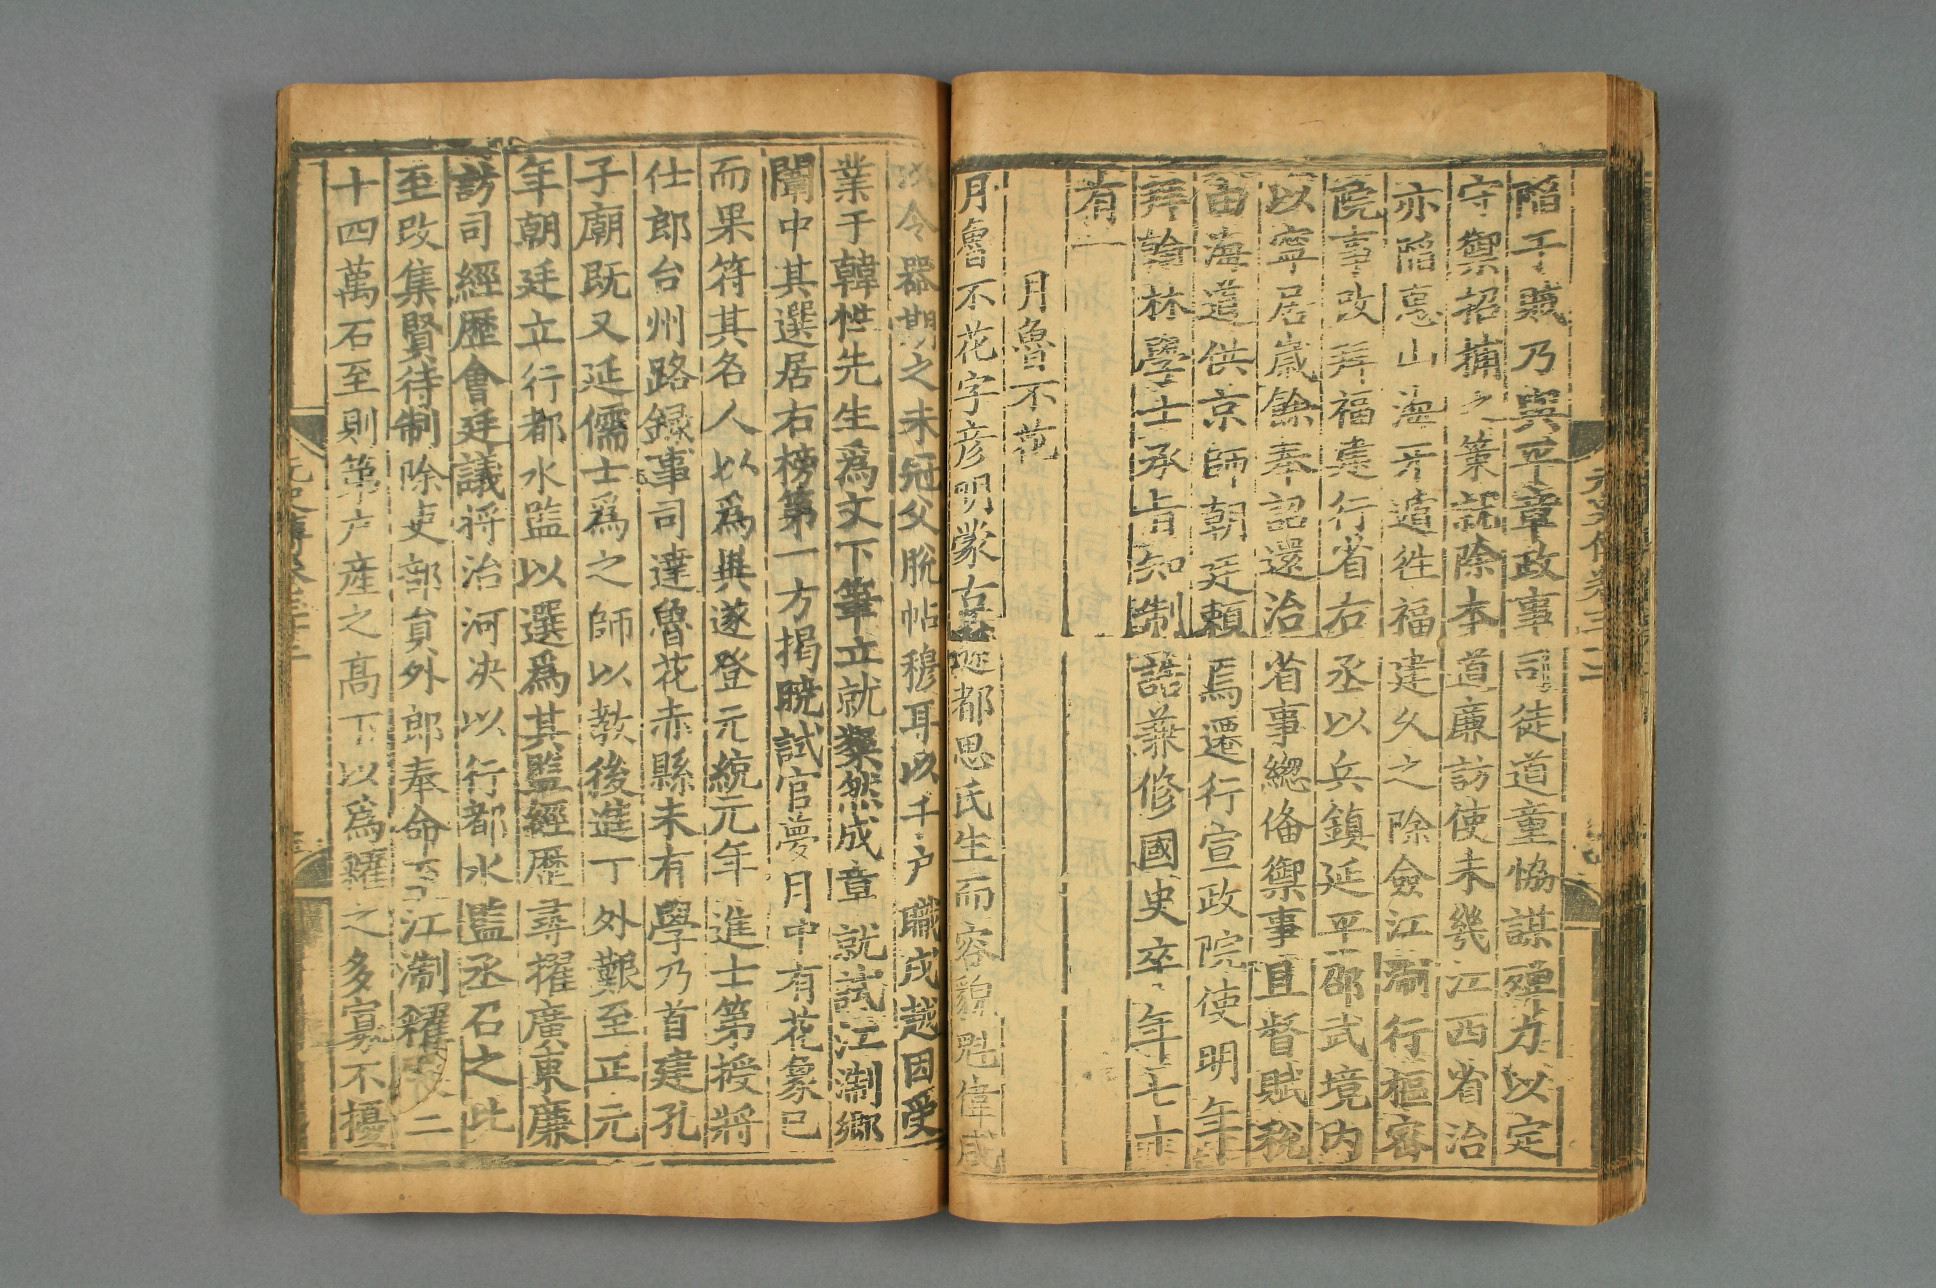 陷于賊乃與平章政事司徒道童恊謀殫力以定
守禦招捕之策就除本道廉訪使未幾江西省治
亦陷惠山海牙遁徃福建久之除僉江淛行樞密
院事改拜福建行省右丞以兵鎮延平邵武境内
以寧居歲餘奉詔還治省事緫偹禦事且督賦稅
由海道供京師朝廷賴焉遷行宣政院使明年
拜翰林學士承旨知制誥兼修國史卒年七十
有一
月魯不花
月魯不花字彦明蒙古遜都思氏生而容貌魁偉咸
以令器期之未冠父脫帖穆耳以千户職戍越因受
業于韓性先生爲文下筆立就粲然成章就試江淛鄉
闈中其選居右榜第一方揭曉試官夢月中有花象已
而果符其名人以爲異遂登元統元年進士第授將
仕郎台州路録事司達魯花赤縣未有學乃首建孔
子廟既又延儒士爲之師以教後進丁外艱至正元
年朝廷立行都水監以選爲其監經歷尋擢廣東廉
訪司經歷會廷議將治河决以行都水監丞召之此
至改集賢待制除吏部員外郎奉命至江淛糴二
十四萬石至則第户產之髙下以爲糴之多寡不擾